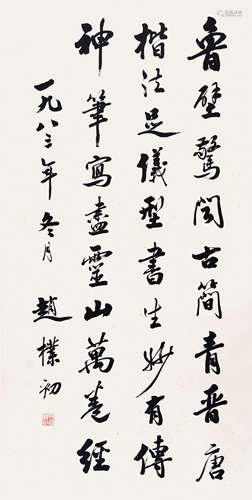 魯壁驚聞古簡青晉唐
楷法足儀型書生妙有傳
神筆寫盡靈山萬卷經
一九八三年冬月
趙樸初